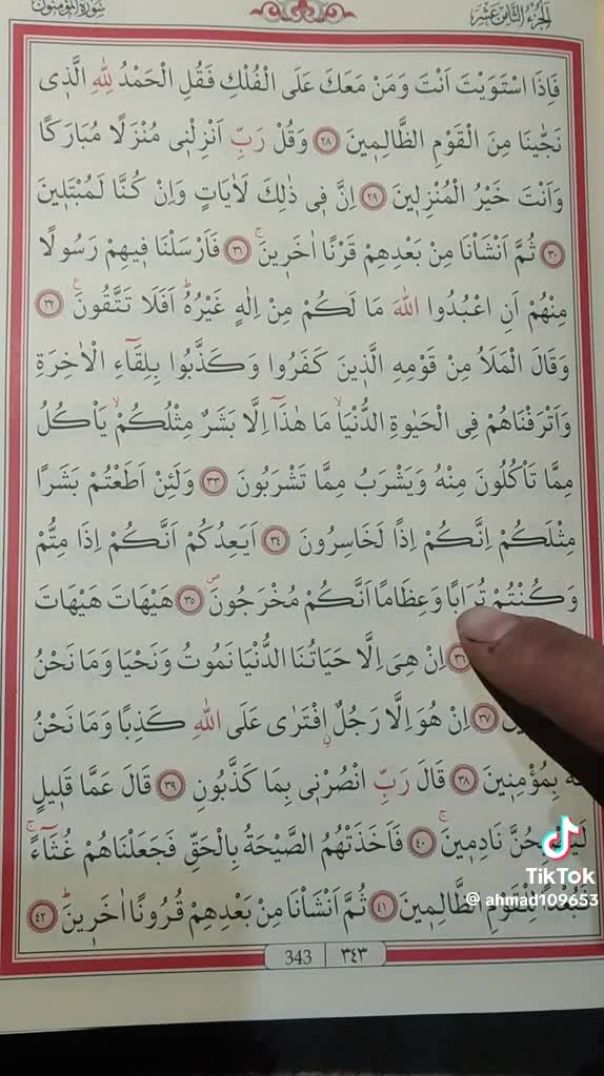 الجزء الثامن عشر
سورة المؤمنون
فَاِذَا اسْتَوَيْتَ اَنْتَ وَمَنْ مَعَكَ عَلَى الْفُلْكِ فَقُلِ الْحَمْدُ لِلّٰهِ الَّذ۪ى
نَجّٰينَا مِنَ الْقَوْمِ الظَّالِم۪ينَ ﴿٢٨﴾ وَقُلْ رَبِّ اَنْزِلْن۪ى مُنْزَلًا مُبَارَكًا
وَاَنْتَ خَيْرُ الْمُنْزِل۪ينَ ﴿٢٩﴾ اِنَّ ف۪ى ذٰلِكَ لَاٰيَاتٍ وَاِنْ كُنَّا لَمُبْتَل۪ينَ
﴿٣٠﴾ ثُمَّ اَنْشَاْنَا مِنْ بَعْدِهِمْ قَرْنًا اٰخَر۪ينَۚ ﴿٣١﴾ فَاَرْسَلْنَا ف۪يهِمْ رَسُولًا
مِنْهُمْ اَنِ اعْبُدُوا اللّٰهَ مَا لَكُمْ مِنْ اِلٰهٍ غَيْرُهُۜ اَفَلَا تَتَّقُونَ۟ ﴿٣٢﴾
وَقَالَ الْمَلَاُ مِنْ قَوْمِهِ الَّذ۪ينَ كَفَرُوا وَكَذَّبُوا بِلِقَٓاءِ الْاٰخِرَةِ
وَاَتْرَفْنَاهُمْ فِى الْحَيٰوةِ الدُّنْيَاۙ مَا هٰذَٓا اِلَّا بَشَرٌ مِثْلُكُمْۙ يَاْكُلُ
مِمَّا تَاْكُلُونَ مِنْهُ وَيَشْرَبُ مِمَّا تَشْرَبُونَ ﴿٣٣﴾ وَلَئِنْ اَطَعْتُمْ بَشَرًا
مِثْلَكُمْ اِنَّكُمْ اِذًا لَخَاسِرُونَ ﴿٣٤﴾ اَيَعِدُكُمْ اَنَّكُمْ اِذَا مِتُّمْ
وَكُنْتُمْ تُرَابًا وَعِظَامًا اَنَّكُمْ مُخْرَجُونَۖ ﴿٣٥﴾ هَيْهَاتَ هَيْهَاتَ
﴿٣٦﴾ اِنْ هِىَ اِلَّا حَيَاتُنَا الدُّنْيَا نَمُوتُ وَنَحْيَا وَمَا نَحْنُ
﴿٣٧﴾ اِنْ هُوَ اِلَّا رَجُلٌۨ افْتَرٰى عَلَى اللّٰهِ كَذِبًا وَمَا نَحْنُ
لَهُ بِمُؤْمِن۪ينَ ﴿٣٨﴾ قَالَ رَبِّ انْصُرْن۪ى بِمَا كَذَّبُونِ ﴿٣٩﴾ قَالَ عَمَّا قَل۪يلٍ
لَيُصْبِحُنَّ نَادِم۪ينَۚ ﴿٤٠﴾ فَاَخَذَتْهُمُ الصَّيْحَةُ بِالْحَقِّ فَجَعَلْنَاهُمْ غُثَٓاءًۚ
فَبُعْدًا لِلْقَوْمِ الظَّالِم۪ينَ ﴿٤١﴾ ثُمَّ اَنْشَاْنَا مِنْ بَعْدِهِمْ قُرُونًا اٰخَر۪ينَۜ ﴿٤٢﴾
343 ٣٤٣
TikTok
@ahmad109653